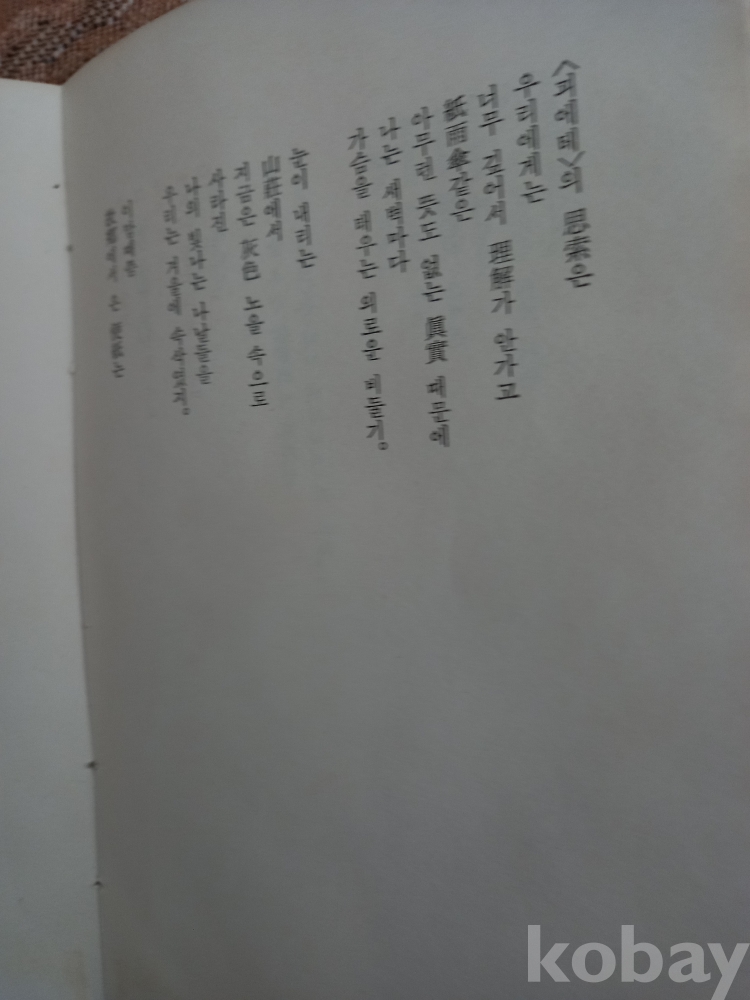 〈피에테〉의 思索은
우리에게는
너무 깊어서 理解가 안가고
紙雨傘같은
아무런 뜻도 없는 眞實 때문에
나는 새벽마다
가슴을 태우는 외로운 비둘기。
눈이 내리는
山莊에서
지금은 灰色 노을 속으로
사라진
나의 빛나는 나날들을
우리는 겨울에
kobay